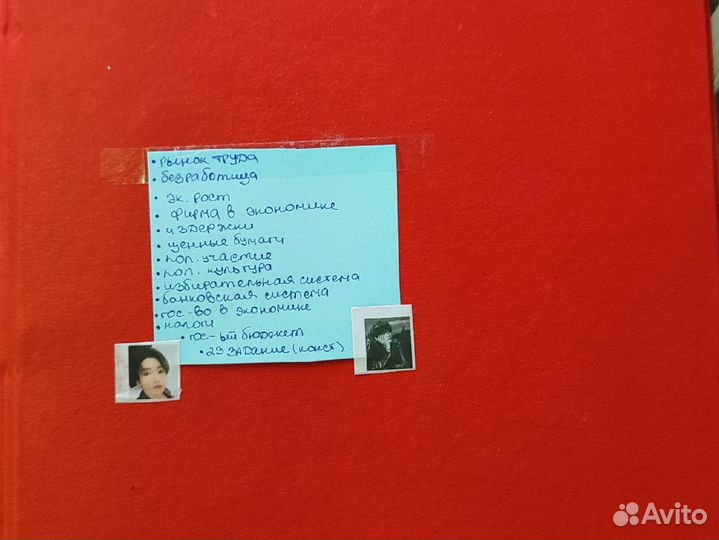 • рынок труда
• безработица
• эк. рост
• фирма в экономике
• издержки
• ценные бумаги
• пол. участие
• пол. культура
• избирательная система
• банковская система
• гос-во в экономике
• налоги
• гос-ый бюджет
• 23 задание (конст)
Avito